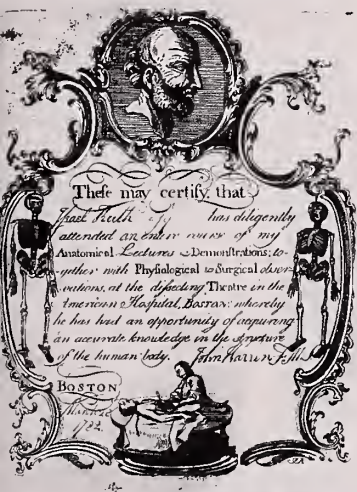 These may certify, that
Israel Keith has diligently
attended an entire course of my
Anatomical Lectures & Demonstrations; to-
gether with Physiological & Surgical obser-
vations, at the dissecting Theatre in the
American Hospital, Boston: whereby
he has had an opportunity of acquiring
an accurate knowledge in the structure
of the human body. John Warren
BOSTON
1782.